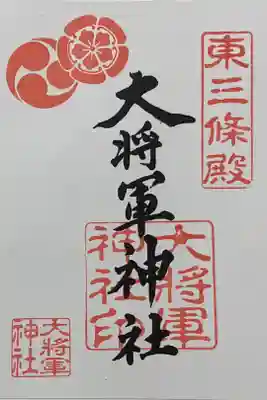 東三條殿
大将軍神社
大將軍
神社印
大將軍
神社